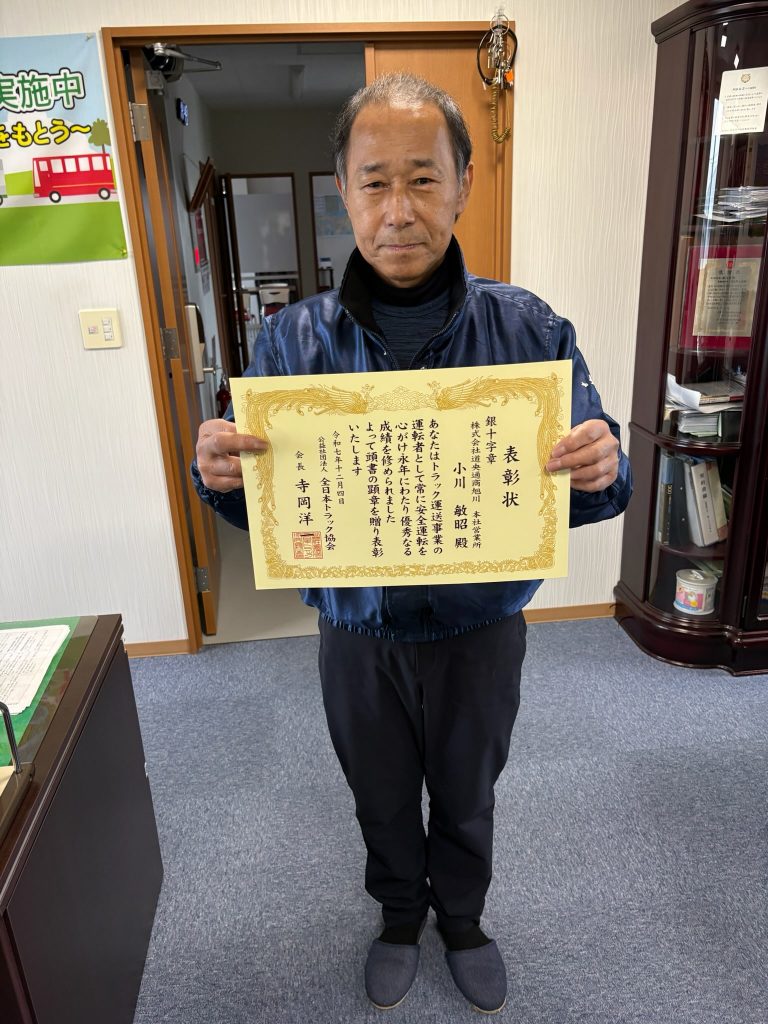 実施中
をもとう〜
表彰状
銀十字章
株式会社道央通商旭川 本社営業所
小川 敏昭 殿
あなたはトラック運送事業の
運転者として常に安全運転を
心がけ永年にわたり優秀なる
成績を修められました
よって頭書の顕章を贈り表彰
いたします
令和七年十二月四日
公益社団法人 全日本トラック協会
会長 寺岡洋一